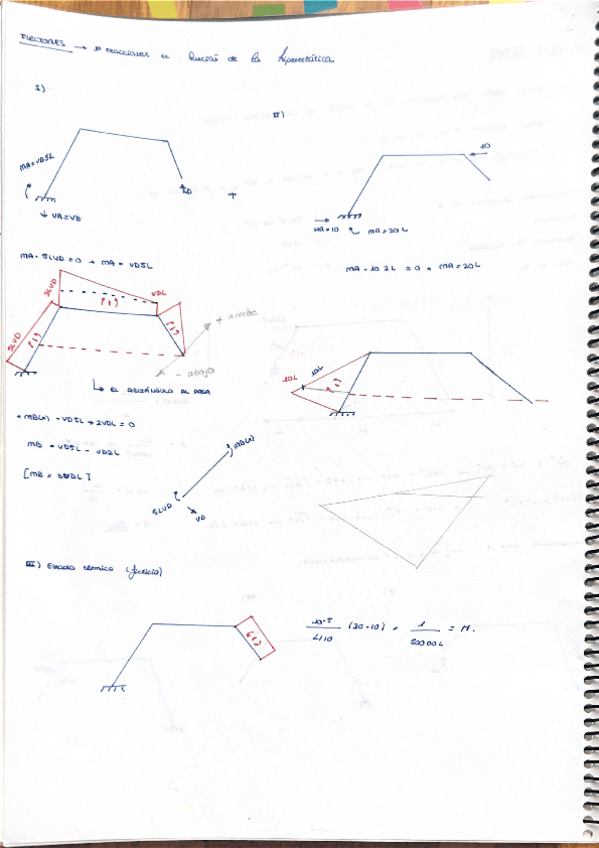 FLEXIONES → reacciones en función de la hiperestática
I)
II)
MA=VD5L
VD
↓ VA=VD
+
10
HA=10
MA=20L
MA - 5LVD=0 → MA = VD5L
MA - 10 2L = 0 → MA=20L
3LVD
VDL
(-)
(-)
(-)
5LVD
+ arriba
- abajo
10L
10L
(-)
↳ EL
+ MB(A) - VD5L + 2VDL = 0
MB = VD5L - VD2L
[MB = 3VDL]
MB(A)
5LVD
VD
III) Estado térmico (ficticio)
(-)
10^-5
L/10
(30-10) =
1
500 00 L
= M.